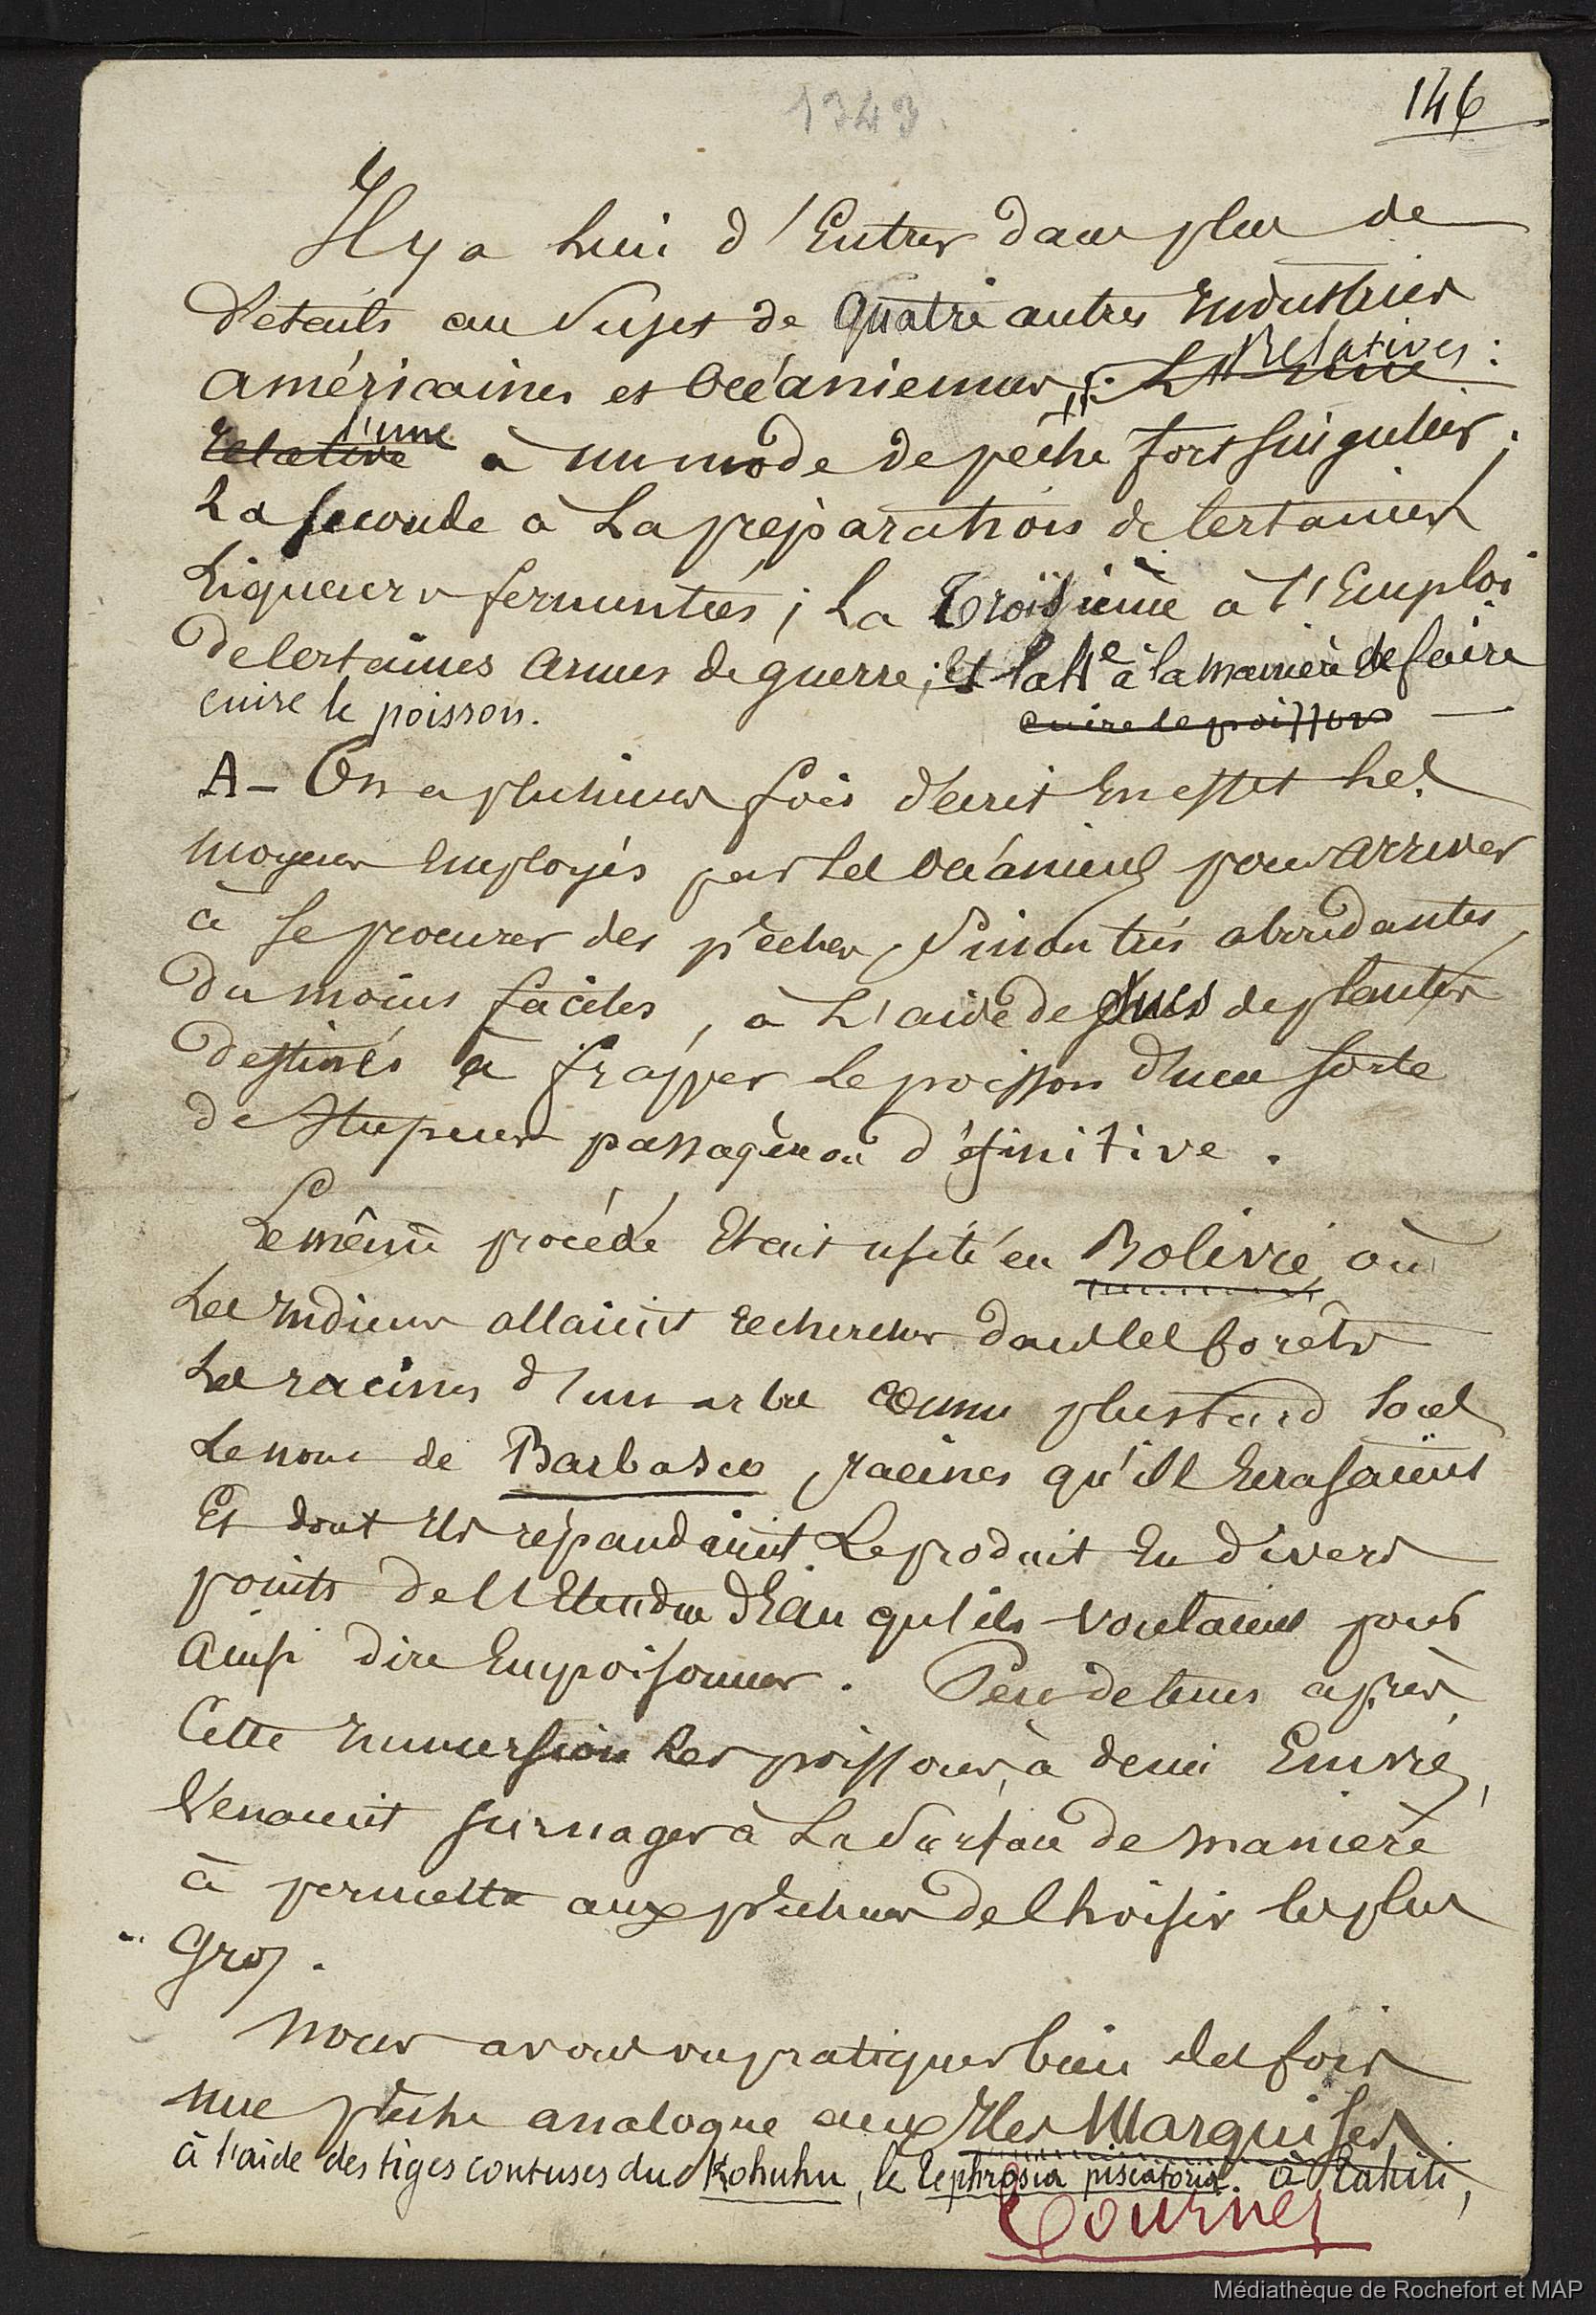 1343.
146
Il y a lieu d'Entrer dans plus de
détails au Sujet de quatre autres Industries
américaines et Océaniennes, : L'une Relatives :
relative l'une à un mode de pêche fort singulier ;
La seconde à La préparation de Certaines
Liqueurs fermentées ; La Troisième à l'Emploi
de Certaines Armes de guerre ; Et la 4e à la manière de faire
cuire le poisson. cuire le poisson —
A — On a plusieurs fois décrit En effet Les
moyens Employés par Les Océaniens pour arriver
à se procurer des pêches, Sinon très abondantes,
du moins faciles, à L'aide de sucs de plantes
destinés à frapper Le poisson d'une sorte
de Stupeur passagère ou définitive.
Le même procédé Etait usité en Bolivie, où
Les Indiens allaient rechercher dans les forêts
Les racines d'un arbre connu plus tard sous
Le nom de Barbasco, racines qu'ils Ecrasaient
Et dont Ils répandaient Le produit En divers
points de l'Etendue d'Eau qu'ils voulaient pour
Ainsi dire Empoisonner. Peu de tems après
Cette Immersion Les poissons, à demi Enivrés,
Venaient surnager à La Surface de manière
à permettre aux pêcheurs de Choisir les plus
Gros.
Nous avons vu pratiquer bien des fois
une pêche analogue aux Iles Marquises
à l'aide des tiges contuses du Kohuhu, le Tephrosia piscatoria. à Tahiti,
Tournez
Médiathèque de Rochefort et MAP